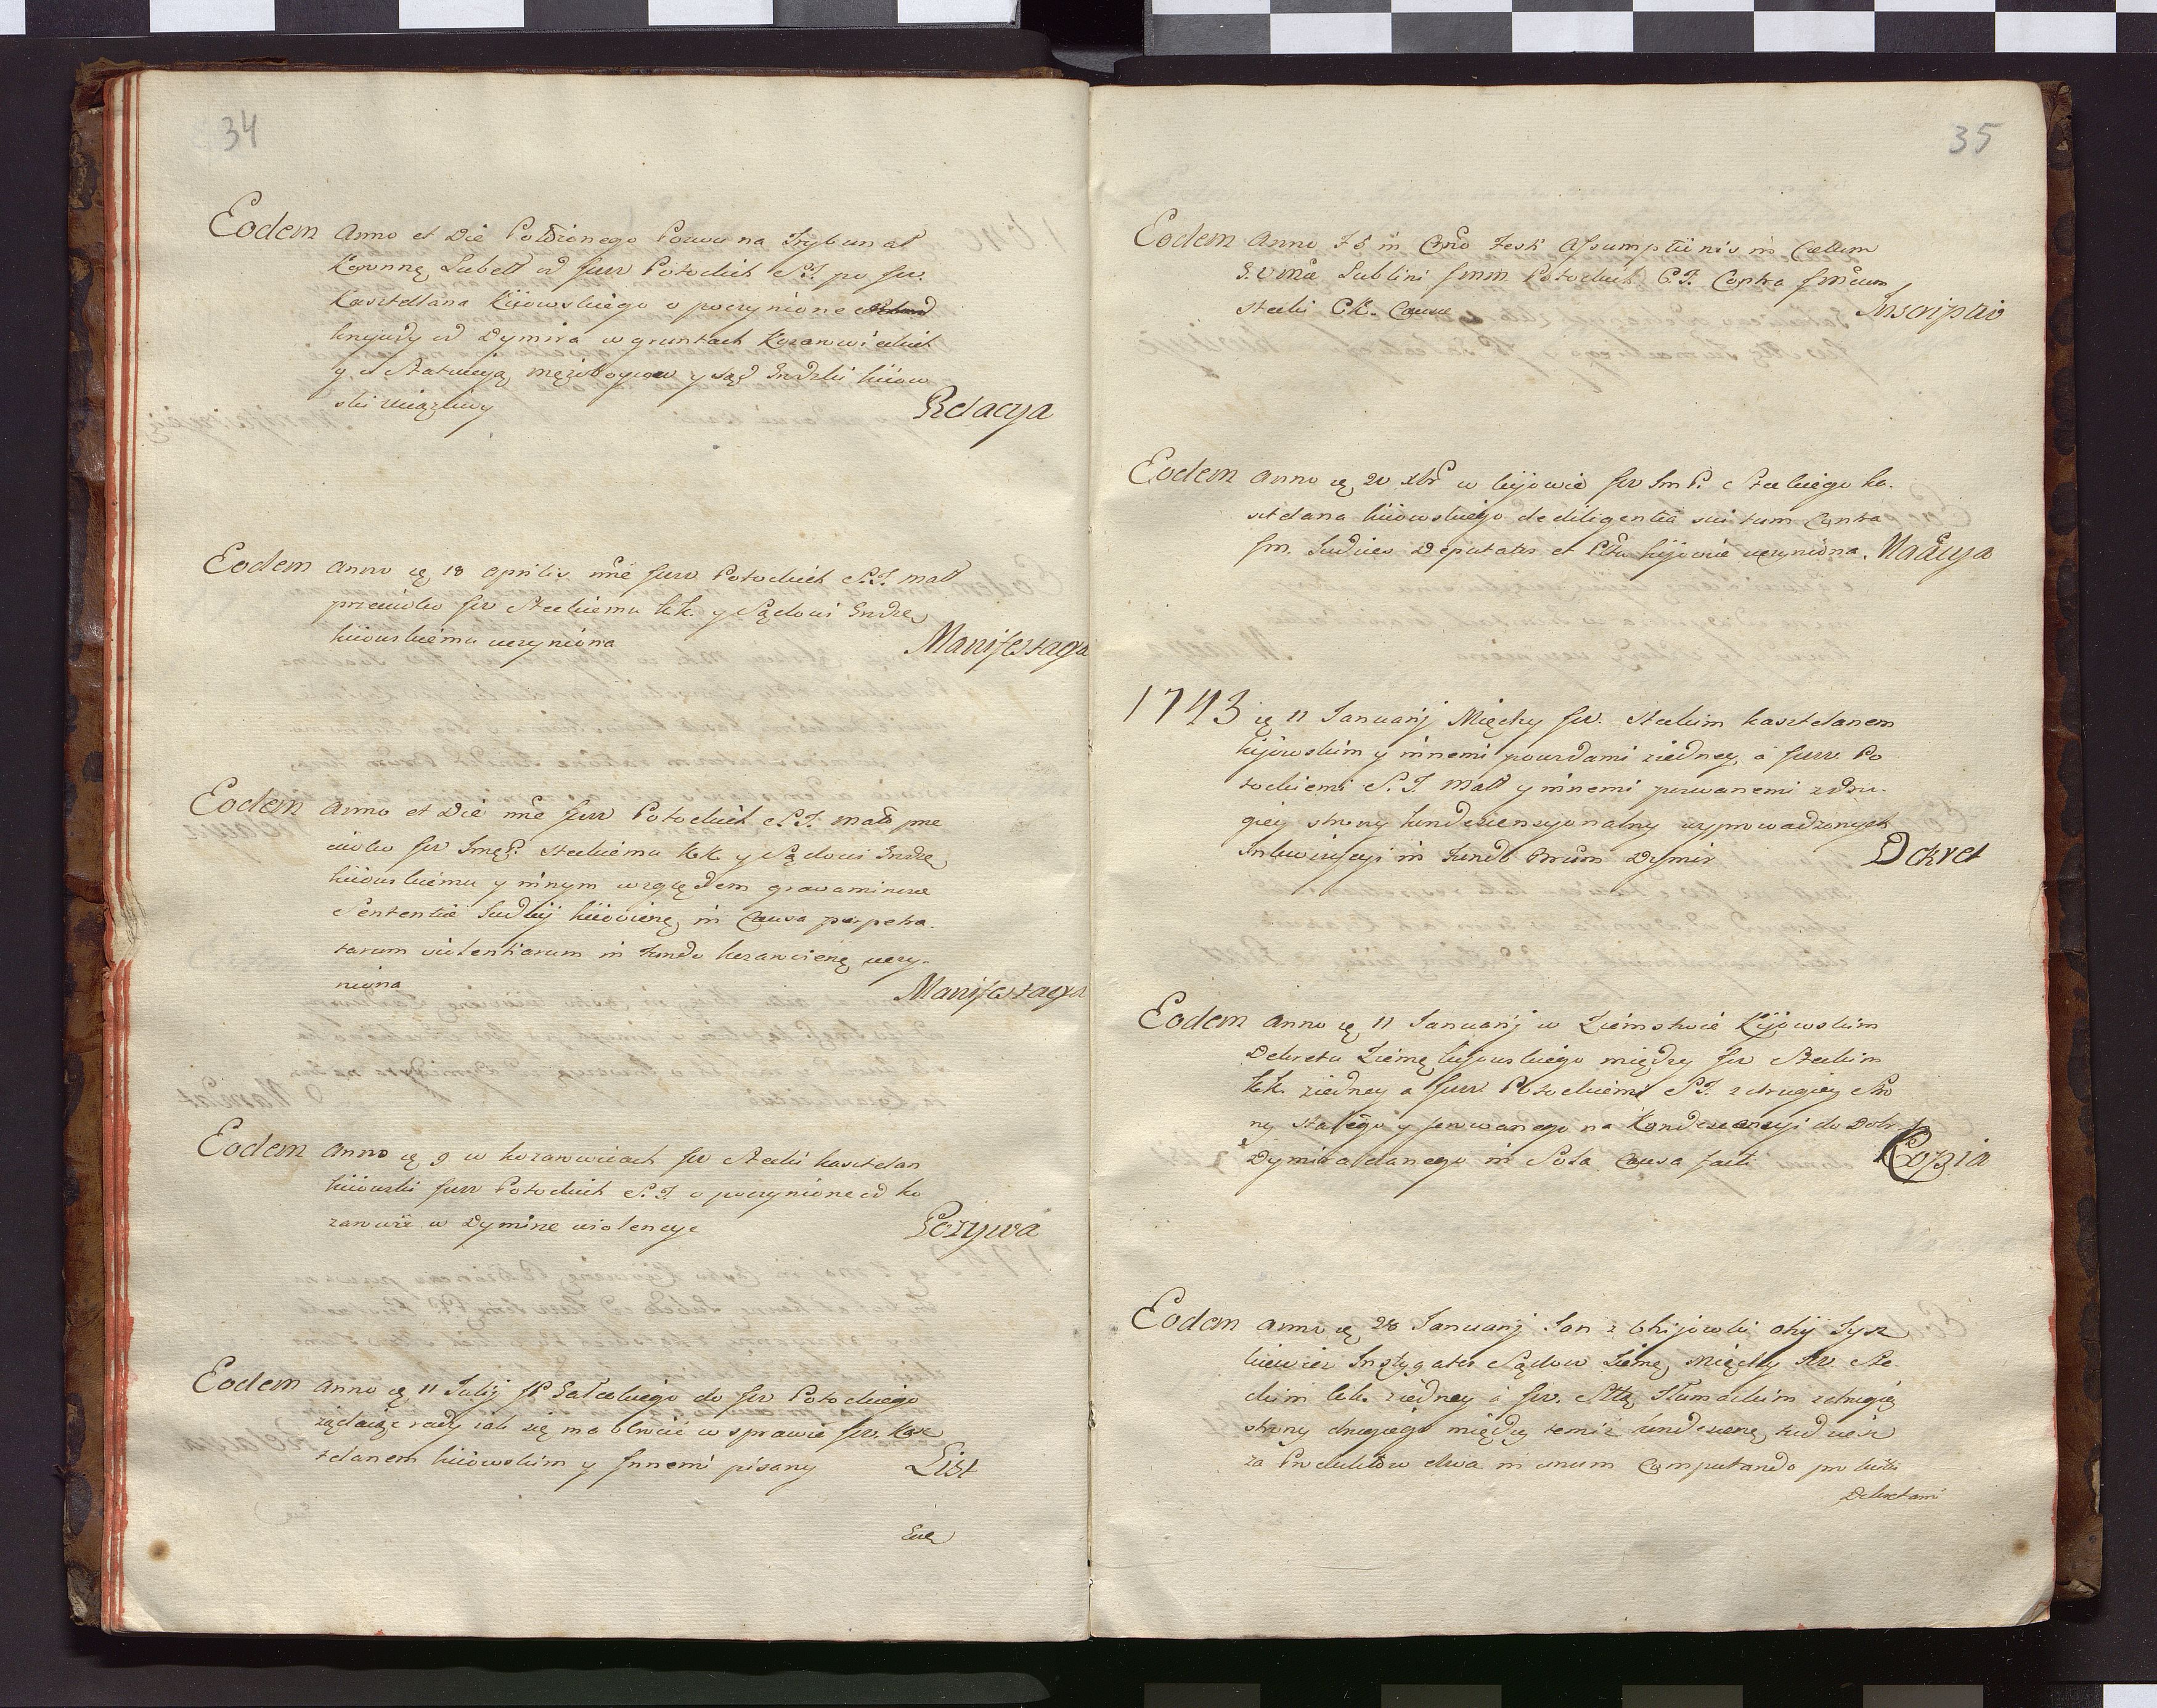 34
Eodem Anno et Die Położonego Pozwu na Trybunał
Koronną Lubell od Jww Potockich S. J. po Jw.
Kasztellana Kiiowskiego o poczynione
krzywdy od Dymira w gruntach Kozarowickich
y o Statucyą męzoboycow y sąd Grodzki kiiow
ski uciązliwy
Relacya
Eodem Anno ię 18 Aprilis nne Jww Potockich S. J. małł
przeciwko Jw Steckiemu kk. y Sądowi Grodz
kiiowskiemu uczyniona
Manifestacya
Eodem Anno et Die nne Jww Potockich S. J. małł prze
ciwko Jw Imę P. Steckiemu kk y Sądowi Grodzę
kiiowskiemu y innym względem gravaminosæ
Sententiæ Judicij kiioviene in Causa perpetra.
tarum violentiarum in fundo kozarovienę uczy-
niona
Manifestacya
Eodem Anno ię 9 w kozarowicach Jw Stecki kasztelan
kiiowski Jww Potockich S. J. o poczynione od ko
zarowic w Dymirze wiolencye
Pozywa
Eodem Anno ię 11 Julij JP Gałeckiego do Jw Potockiego
ządaiąc rady iak się ma bronić w sprawie Jw. Kasz
telanem kiiowskim y Innemi pisany
List
35
Eodem Anno F 6 in Cro Festi Assumptionis in Cælum
B. V. Mæ Lublini Jmm Potockich C. J. Contra Jmcum
Stecki CK. Causæ
Inscriptio
Eodem Anno ię 20 xbr w kijowie Jw Im P. Steckiego ka.
sztelana kiiowskiego de diligentia sui tum Contra
Jm. Judices Deputatos et kijowie uczyniona.
1743 ię 11 Januarij Między Jw. Steckim kasztelanem
kijowskim y innemi powodami ziedney, a Jww. Po
tockiemi S. J. Małł y innemi pozwanemi z dru-
giey strony kondescensyonalny wyprowadzonych
Inkwizycyi in fundo Bonum Dymir
Dekret
Eodem Anno ię 11 Januarij w Ziemstwie Kijowskim
Dekretu Ziemę kijowskiego między Jw Steckim
kk. ziedney a Jww. Potockiemi S. J. z drugiey Stro
ny stałego y ferowanego na Kondescensyi do Dobr
Dymira danego in Sola Causa facti
Kopia
Eodem Anno ię 28 Januarij Jan z
kiewicz Instygator Sądow Ziemę, Między Jw. Ste.
ckim kk. ziedney a Jw. Sttą Tłumackim z drugiey
strony drugiego między temiż kondescenę
za Produktow dwa in unum Computando po
Dekretami